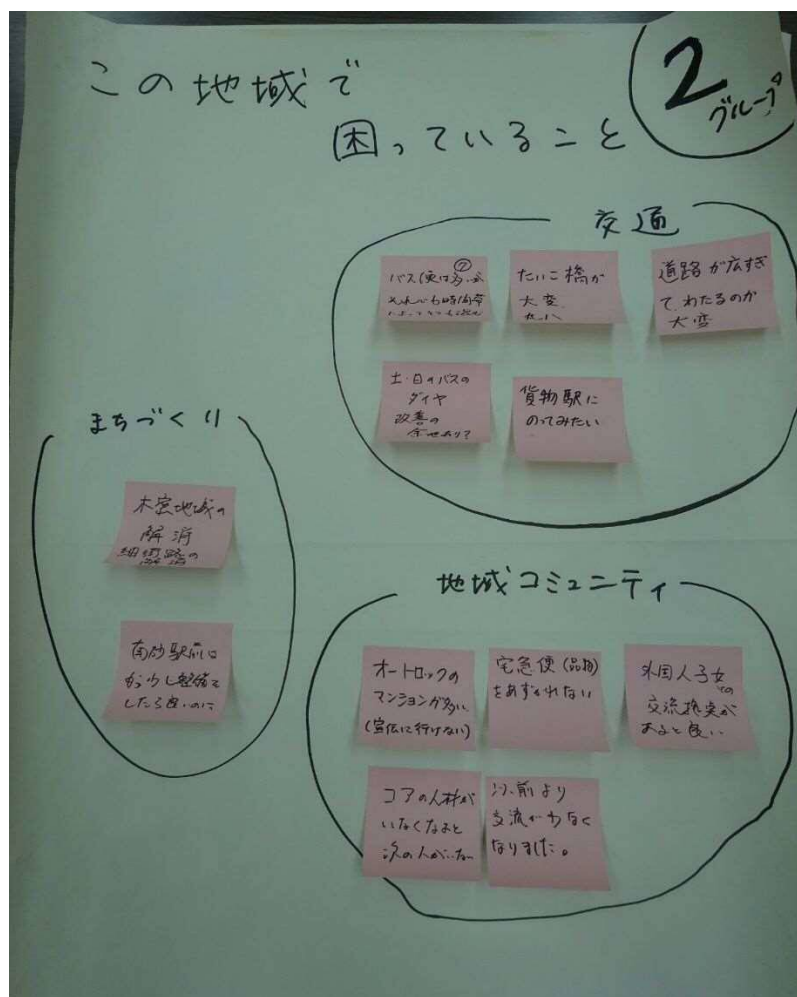 この地域で
困っていること
2
グループ
交通
バス便は多いが
それでも時間帯
たいこ橋が
大変
道路が広すぎ
て、わたるのが
大変
土・日のバスの
ダイヤ
改善の
余地あり?
貨物駅に
のってみたい
まちづくり
木密地域の
解消
細街路の
解消
南砂駅前は
もう少し整備を
したら良いのに
地域コミュニティ
オートロックの
マンションが多い
(宣伝に行けない)
宅急便(品物)
をあずかれない
外国人子女との
交流拠点が
あると良い
コアの人材が
いなくなると
次の人がいない
以前より
交流がなく
なりました。